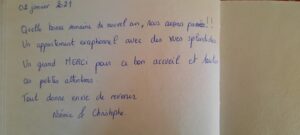 02 janvier 2021
Quelle bonne semaine du nouvel an, nous avons passée!!
Un appartement exceptionnel avec des vues splendides
Un grand MERCI pour ce bon accueil et toutes
ces petites attentions.
Tout donne envie de revenir
Noémie & Christophe.